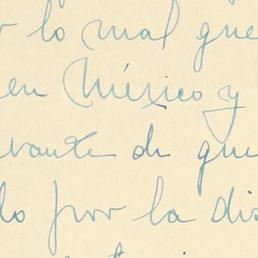 lo mal que
en México y
vante de que
lo por la dis